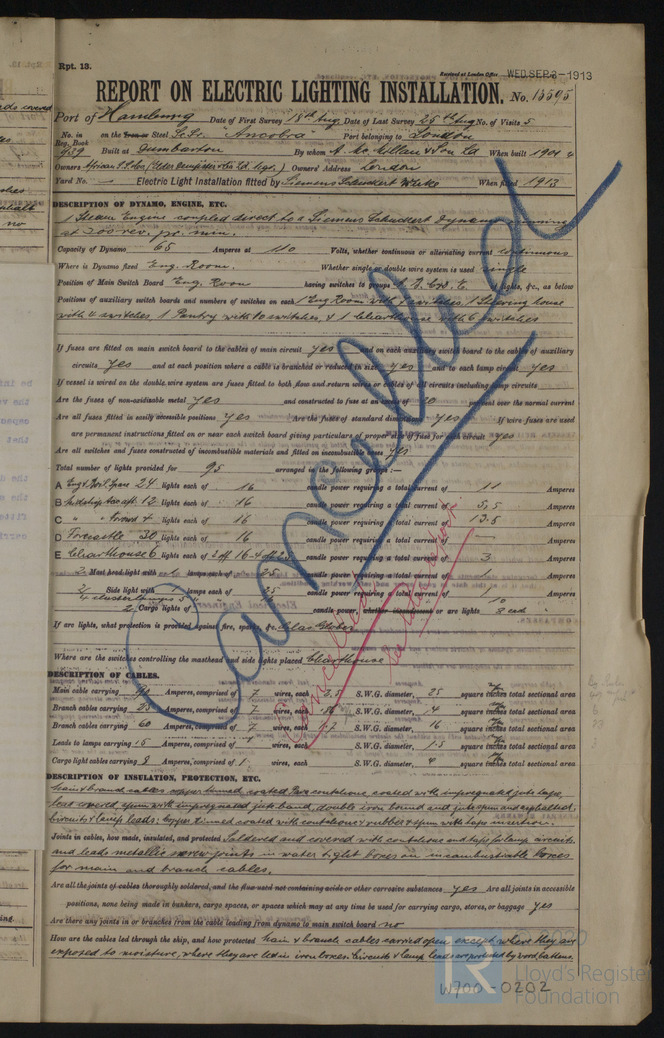 Rpt. 13.
Received at London Office WED. SEP. 3-1913
REPORT ON ELECTRIC LIGHTING INSTALLATION. No. 15595
Port of Hamburg Date of First Survey 18th Aug Date of Last Survey 28th Aug No. of Visits 5
No. in Reg. Book on the Iron or Steel "Ancobra" Port belonging to London
Built at Dumbarton By whom A. McMillan & Son Ld When built 1904
Owners African S.S. Co. (Elder Dempster & Co. Ld. Mgrs.) Owners' Address London
Yard No. — Electric Light Installation fitted by Siemens Schuckert Werke When fitted 1913
DESCRIPTION OF DYNAMO, ENGINE, ETC.
1 Steam Engine coupled direct to a Siemens Schuckert Dynamo running
at 200 rev. pr. min.
Capacity of Dynamo 65 Amperes at 110 Volts, whether continuous or alternating current continuous
Where is Dynamo fixed Eng. Room. Whether single or double wire system is used single
Position of Main Switch Board Eng. Room having switches to groups A, B, C, D, E. of lights, &c., as below
Positions of auxiliary switch boards and numbers of switches on each 1 Eng Room with switches, 1 Steering house
with 4 switches, 1 Pantry with 10 switches, & 1 Charthouse with 6 switches
If fuses are fitted on main switch board to the cables of main circuit yes and on each auxiliary switch board to the cables of auxiliary
circuits yes and at each position where a cable is branched or reduced in size yes and to each lamp circuit yes
If vessel is wired on the double wire system are fuses fitted to both flow and return wires or cables of all circuits including lamp circuits
Are the fuses of non-oxidizable metal yes and constructed to fuse at an excess of per cent over the normal current
Are all fuses fitted in easily accessible positions yes Are the fuses of standard dimensions yes If wire fuses are used
are permanent instructions fitted on or near each switch board giving particulars of proper size of fuse for each circuit yes
Are all switches and fuses constructed of incombustible materials and fitted on incombustible bases yes
Total number of lights provided for 95 arranged in the following groups :—
A Eng & Boil. Space 24 lights each of 16 candle power requiring a total current of 11 Amperes
B Midship acc. aft. 12 lights each of 16 candle power requiring a total current of 5,5 Amperes
C " forwd 4 lights each of 16 candle power requiring a total current of 13.5 Amperes
D Forecastle 30 lights each of 16 candle power requiring a total current of — Amperes
E Charthouse 6 lights each of 2 off 16 - 4 off 25 candle power requiring a total current of 3 Amperes
2 Mast head light with 1 lamps each of 25 candle power requiring a total current of 1 Amperes
2 Side light with lamps each of 25 candle power requiring a total current of Amperes
2 Cargo lights of candle power, whether incandescent or arc lights
If arc lights, what protection is provided against fire, sparks, &c. Glas Globes
Where are the switches controlling the masthead and side lights placed Charthouse
DESCRIPTION OF CABLES.
Main cable carrying Amperes, comprised of 7 wires, each S.W.G. diameter, 25 square inches total sectional area
Branch cables carrying 25 Amperes, comprised of 7 wires, each S.W.G. diameter, 4 square inches total sectional area
Branch cables carrying 60 Amperes, comprised of 7 wires, each 1.7 S.W.G. diameter, 16 square inches total sectional area
Leads to lamps carrying 15 Amperes, comprised of wires, each S.W.G. diameter, 1.5 square inches total sectional area
Cargo light cables carrying 8 Amperes, comprised of 1 wires, each S.W.G. diameter, 4 square inches total sectional area
DESCRIPTION OF INSULATION, PROTECTION, ETC.
Main & branch cables copper tinned, coated Para coutchouc, coated with impregnated jute tape,
lead covered, spun with impregnated jute band, double iron bound and jute spun and asphalted.
Circuits & lamp leads: Copper tinned coated with coutchouc & rubber & spun with tape insertion.
Joints in cables, how made, insulated, and protected Soldered and covered with coutchouc and tape for lamp circuits
and leads metallic screw joints in water tight boxes on incombustible boxes
for main and branch cables.
Are all the joints of cables thoroughly soldered, and the flux used not containing acids or other corrosive substances yes Are all joints in accessible
positions, none being made in bunkers, cargo spaces, or spaces which may at any time be used for carrying cargo, stores, or baggage yes
Are there any joints in or branches from the cable leading from dynamo to main switch board no
How are the cables led through the ship, and how protected Main & branch cables carried open, except where they are
exposed to moisture, where they are led in iron boxes. Circuits & lamp leads are protected by wood battens
Cancelled
Cancelled
W700-0202
© 2020
LR
Lloyd's Register
Foundation